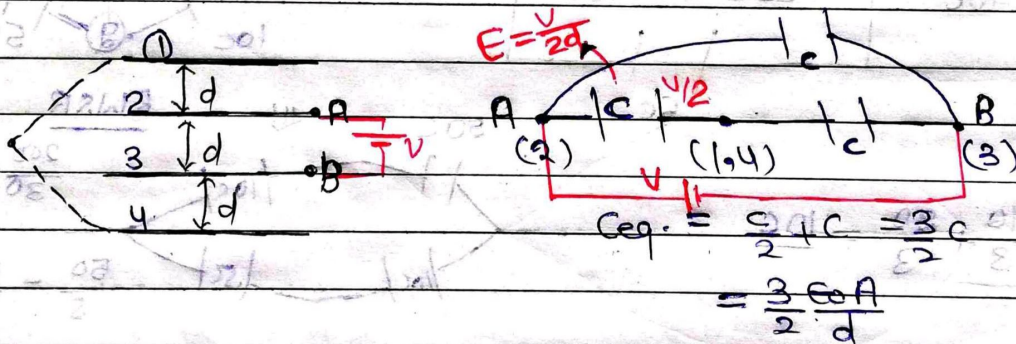 ①
2
3
4
d
d
d
A
B
V
E = V/2d
C
A
C
V/2
C
B
(2)
(1,4)
(3)
V
Ceq. = C/2 + C = 3/2 C
= 3/2 ϵ0A/d